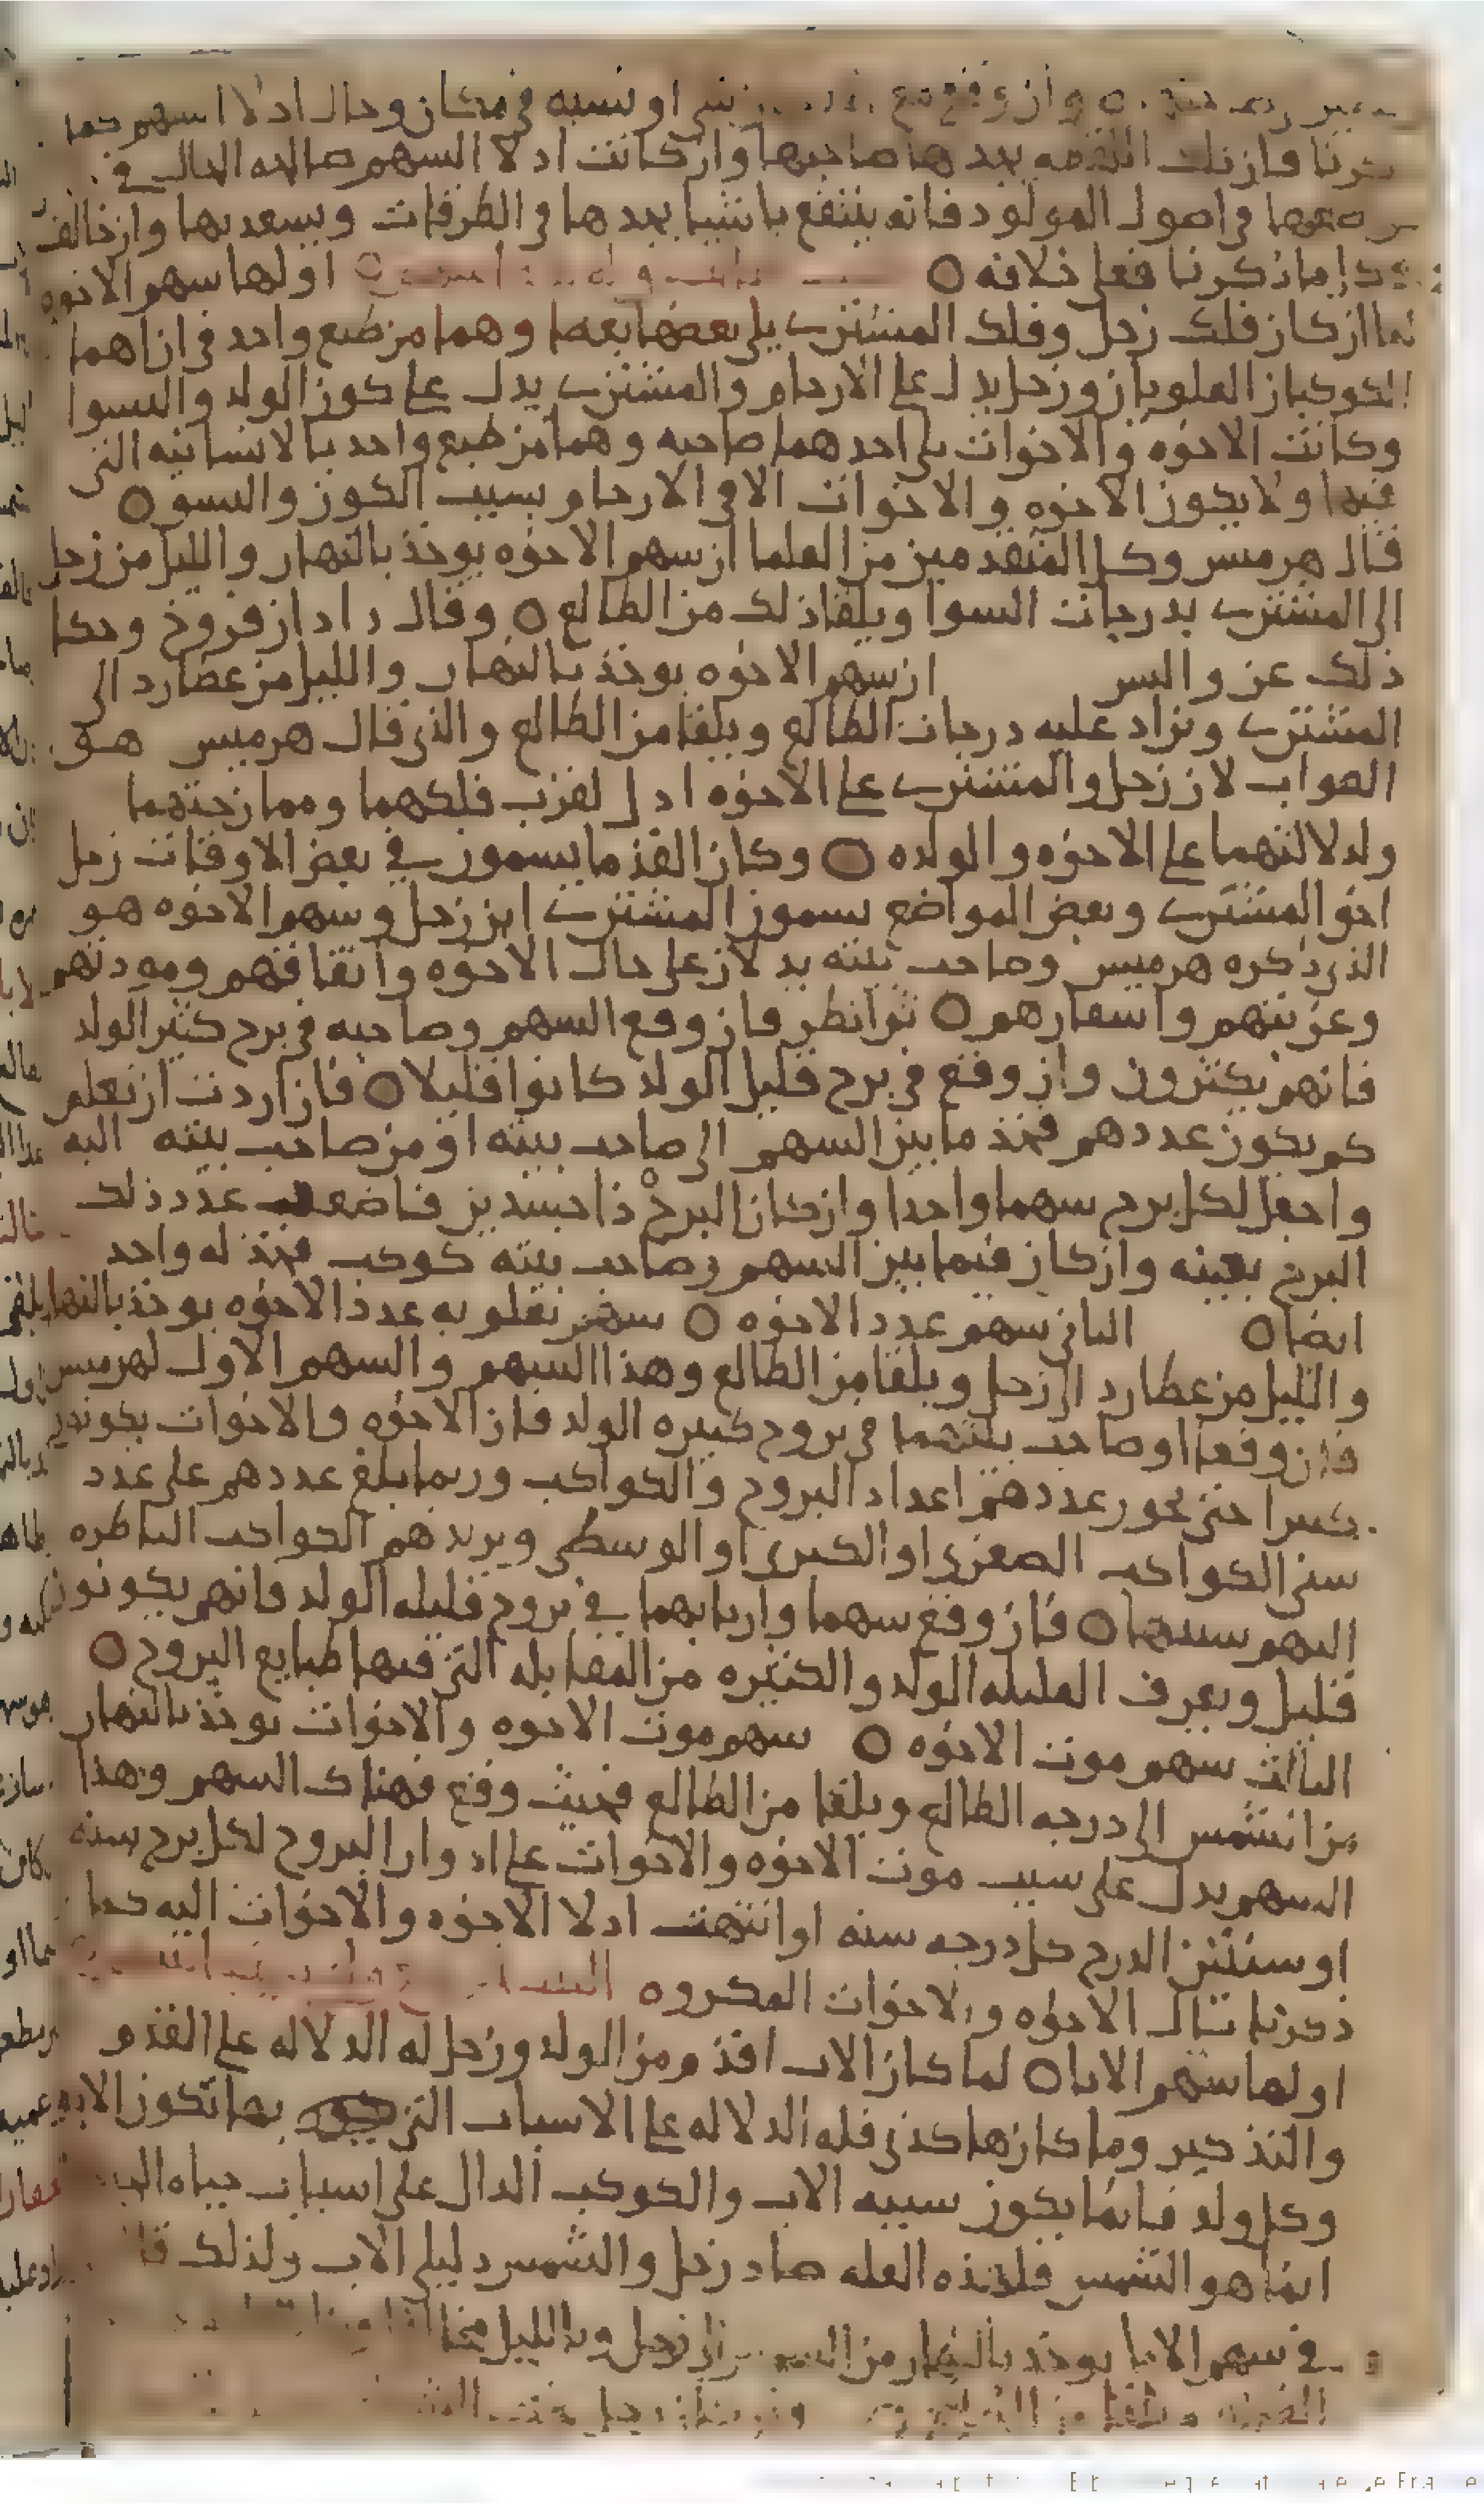 وان وقع مع او نسبه في مكان وحال ادلا السهم كما
فان تلك النفقه يجدها صاحبها وان كانت ادلا السهم صالحه الحال في
في اصول المولود فانه ينتفع باشيا يجدها في الطرقات ويسعد بها وان خالف
ما ذكرنا فعلى خلافه ○ اولها سهم الاخوه
لما ان كان فلك زحل وفلك المشتري يلي بعضها بعضا وهما من طبع واحد في انهما
الكوكبان العلويان وزحل يدل على الارحام والمشتري يدل على كون الولد والنسوا
وكانت الاخوه والاخوات يلي احدهما صاحبه وهما من طبع واحد بالانسانيه التي
فيها ولا يكون الاخوه والاخوات الا في الارحام وبسبب الكون والنسو ○
قال هرمس وكل المتقدمين من العلما ان سهم الاخوه يوخذ بالنهار والليل من زحل
الى المشتري بدرجات السوا ويلقا ذلك من الطالع ○ وقال زادان فروخ وحكا
ذلك عن واليس ان سهم الاخوه يوخذ بالنهار والليل من عطارد الى
المشتري ويزاد عليه درجات الطالع ويلقا من الطالع والذي قال هرميس هو
الصواب لان زحل والمشتري على الاخوه ادل لقرب فلكهما وممازجتهما
ولدلالتهما على الاخوه والولده ○ وكان القدما يسمون في بعض الاوقات زحل
اخو المشتري وبعض المواضع يسمون المشتري ابن زحل وسهم الاخوه هو
الذي ذكره هرميس وصاحب بيته يدلان على حال الاخوه واتفاقهم ومودتهم
وعزبتهم واسفارهم ○ ثم انظر فان وقع السهم وصاحبه في برج كثير الولد
فانهم يكثرون وان وقع في برج قليل الولد كانوا قليلا ○ فان اردت ان تعلم
كم يكون عددهم فخذ ما بين السهم الى صاحب بيته او من صاحب بيته اليه
واجعل لكل برج سهما واحدا وان كان البرج ذا جسدين فاضعف عدد ذلك
البرج بعينه وان كان فيما بين السهم وصاحب بيته كوكب فخذ له واحد
ايضا ○ الثاني سهم عدد الاخوه ○ سهم تعلم به عدد الاخوه يوخذ بالنهار
والليل من عطارد الى زحل ويلقا من الطالع وهذا السهم والسهم الاول لهرميس
فان وقعا او صاحب بيتهما في بروج كثيره الولد فان الاخوه والاخوات يكونون
كثيرا حتى يجوز عددهم اعداد البروج والكواكب وربما بلغ عددهم على عدد
سني الكواكب الصغرى او الكبرى او الوسطى ويزيدهم الكواكب الناظره
اليهم سنيها ○ فان وقع سهما واربابهما في بروج قليله الولد فانهم يكونون
قليل ويعرف القليله الولد والكثيره من المقابله التي فيها طبايع البروج ○
الثالث سهم موت الاخوه ○ سهم موت الاخوه والاخوات يوخذ بالنهار
من الشمس الى درجه الطالع ويلقا من الطالع فحيث وقع فهناك السهم وهذا
السهم يدل على سبب موت الاخوه والاخوات على ادوار البروج لكل برج سنه
او سنتين الدرج كل درجه سنه او انتهت ادلا الاخوه والاخوات اليه كما
ذكرنا تنال الاخوه والاخوات المكروه
اولها سهم الابا ○ لما كان الاب اقدم من الولد وزحل له الدلاله على القدم
والتذكير وما كان هاكذي فله الدلاله على الاسباب التي بها تكون الابوه
وكل ولد فانما يكون سببه الاب والكوكب الدال على اسباب حياه
انما هو الشمس فلهذه العله صار زحل والشمس دليلي الاب ولذلك
في سهم الابا يوخذ بالنهار من الشمس الى زحل وبالليل